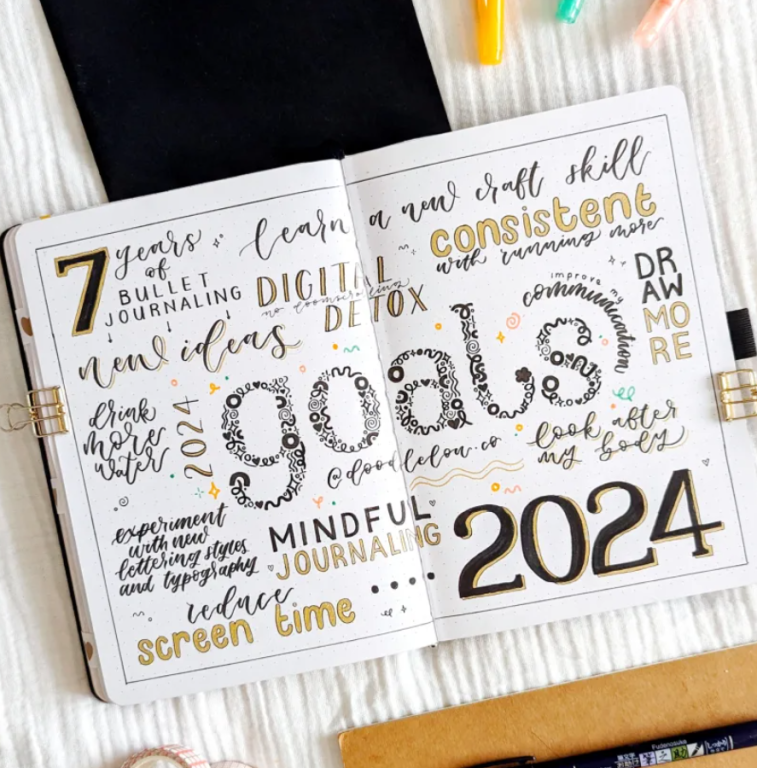 learn a new craft skill
7 years
of
BULLET
JOURNALING
DIGITAL
no doomscrolling
DETOX
consistent
with running more
new ideas
improve my
communication
DR
AW
MO
RE
drink
more
water
2024
goals
@doodlelou.co
look after
my body
experiment
with new
lettering styles
and typography
MINDFUL
JOURNALING
2024
reduce
screen time
Fudenosuke